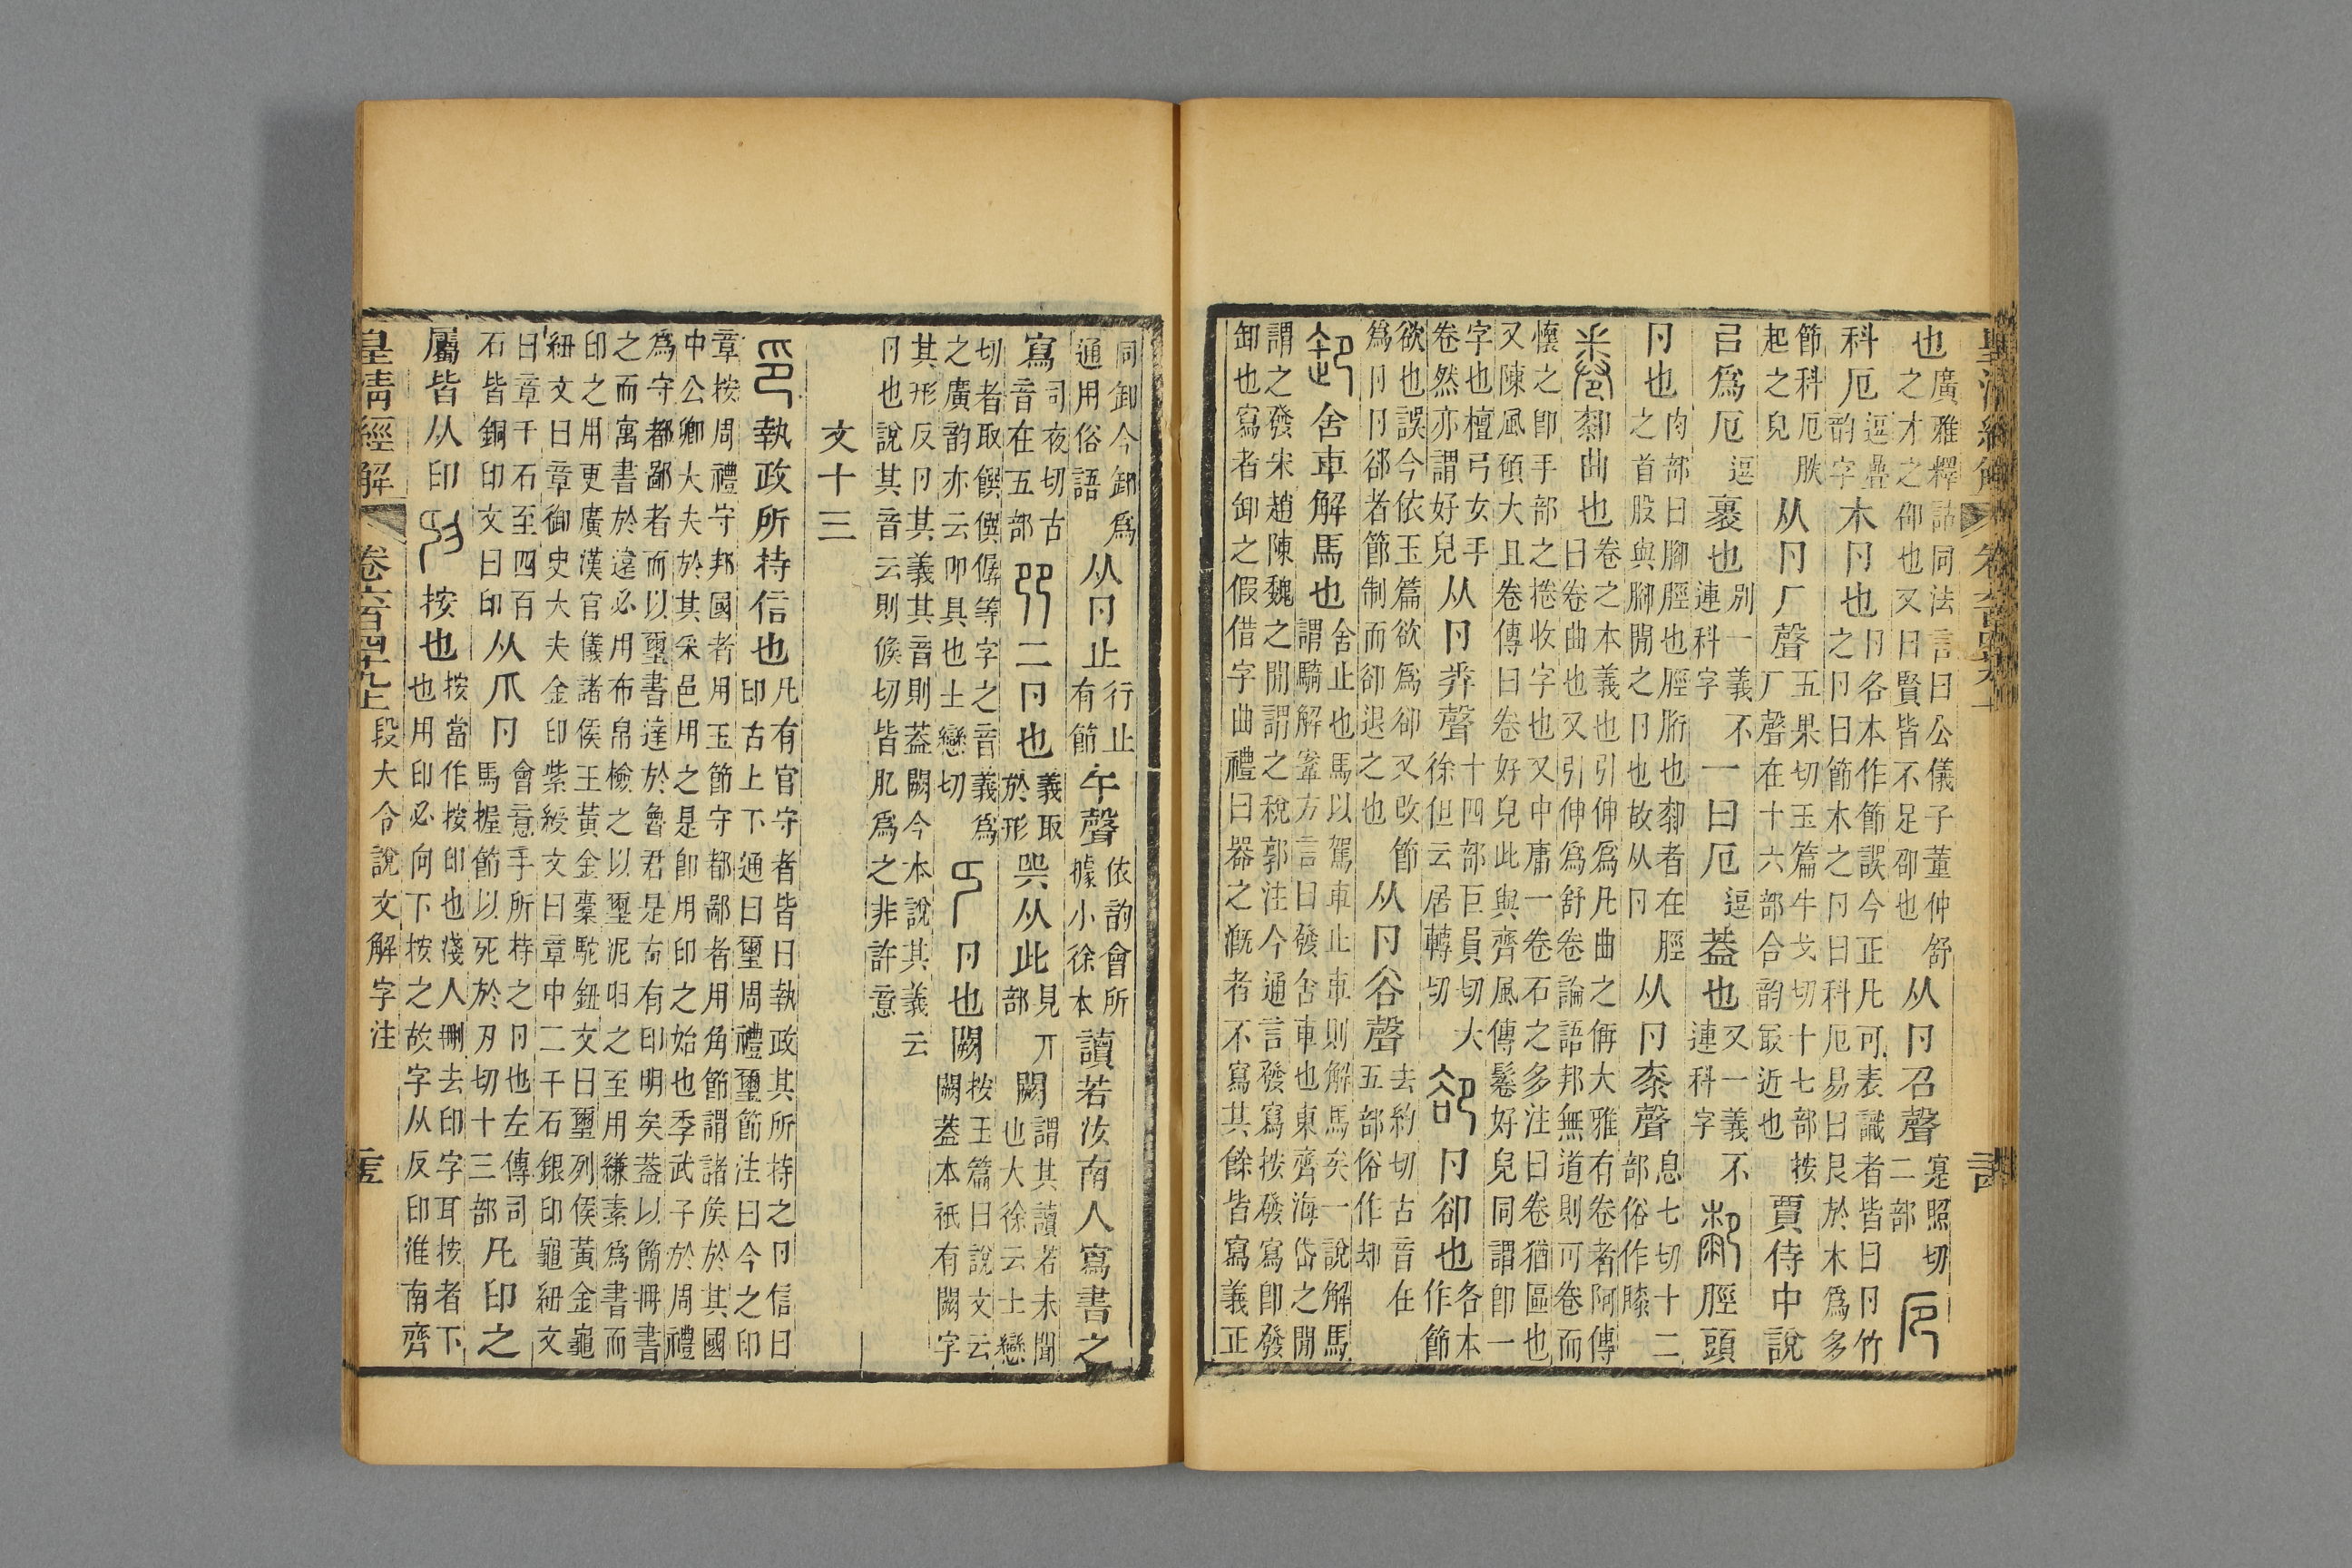 皇清經解　卷六百四十九上
也廣雅釋詁同法言曰公儀子董仲舒之才之卲也又曰賢皆不足卲也从卪召聲寔照切二部厄
科厄逗疊韵字木卪也卪各本作節誤今正凡可表識者皆曰卪竹之卪曰節木之卪曰科厄易曰艮於木爲多
節科厄腅起之皃从卪厂聲五果切玉篇牛戈切十七部按厂聲在十六部合韵冣近也賈侍中說
㠯爲厄逗裹也別一義不連科字一曰厄逗蓋也又一義不連科字厀脛頭
卪也肉部曰腳脛也脛胻也厀者在脛之首股與腳閒之卪也故从卪从卪桼聲息七切十二部俗作膝
卷厀曲也卷之本義也引伸爲凡曲之偁大雅有卷者阿傳曰卷曲也又引伸爲舒卷論語邦無道則可卷而
懷之卽手部之捲收字也又中庸一卷石之多注曰卷猶區也又陳風碩大且卷傳曰卷好皃此與齊風傳鬈好皃同謂卽一
字也檀弓女手卷然亦謂好皃从卪𢍏聲十四部巨員切大徐但云居轉切卻卪卻也各本作節
欲也誤今依玉篇欲爲卻又改節爲卪卪卻者節制而卻退之也从卪谷聲去約切古音在五部俗作却
卸舍車解馬也舍止也馬以駕車止車則解馬矣一說解馬謂騎解鞌方言曰發舍車也東齊海岱之閒
謂之發宋趙陳魏之閒謂之稅郭注今通言發寫按發寫卽發卸也寫者卸之假借字曲禮曰器之溉者不寫其餘皆寫義正
同卸今卸爲通用俗語从卪止行止有節午聲依韵會所據小徐本讀若汝南人寫書之
寫司夜切古音在五部卪卪二卪也義取於形巺从此見丌部闕謂其讀若未聞也大徐云士戀
切者取饌僎僝等字之音義爲之廣韵亦云卪卪具也士戀切卪也闕按玉篇曰說文云闕蓋本祇有闕字
其形反卪其義其音則蓋闕今本說其義云卪也說其音云則候切皆肊爲之非許意
文十三
印執政所持信也凡有官守者皆曰執政其所持之卪信曰印古上下通曰璽周禮璽節注曰今之印
章按周禮守邦國者用玉節守都鄙者用角節謂諸矦於其國中公卿大夫於其采邑用之是卽用印之始也季武子於周禮
爲守都鄙者而以璽書達於魯君是古有印明矣蓋以簡冊書之而寓書於遠必用布帛檢之以璽泥㠯之至用縑素爲書而
印之用更廣漢官儀諸侯王黃金橐駝鈕文曰璽列侯黃金龜紐文曰章御史大夫金印紫綬文曰章中二千石銀印龜紐文
曰章千石至四百石皆銅印文曰印从爪卪會意手所持之卪也左傳司馬握節以死於刃切十三部凡印之
屬皆从印按也按當作按印也淺人刪去印字耳按者下也用印必向下按之故字从反印淮南齊
皇清經解　卷六百四十九上　段大令說文解字注